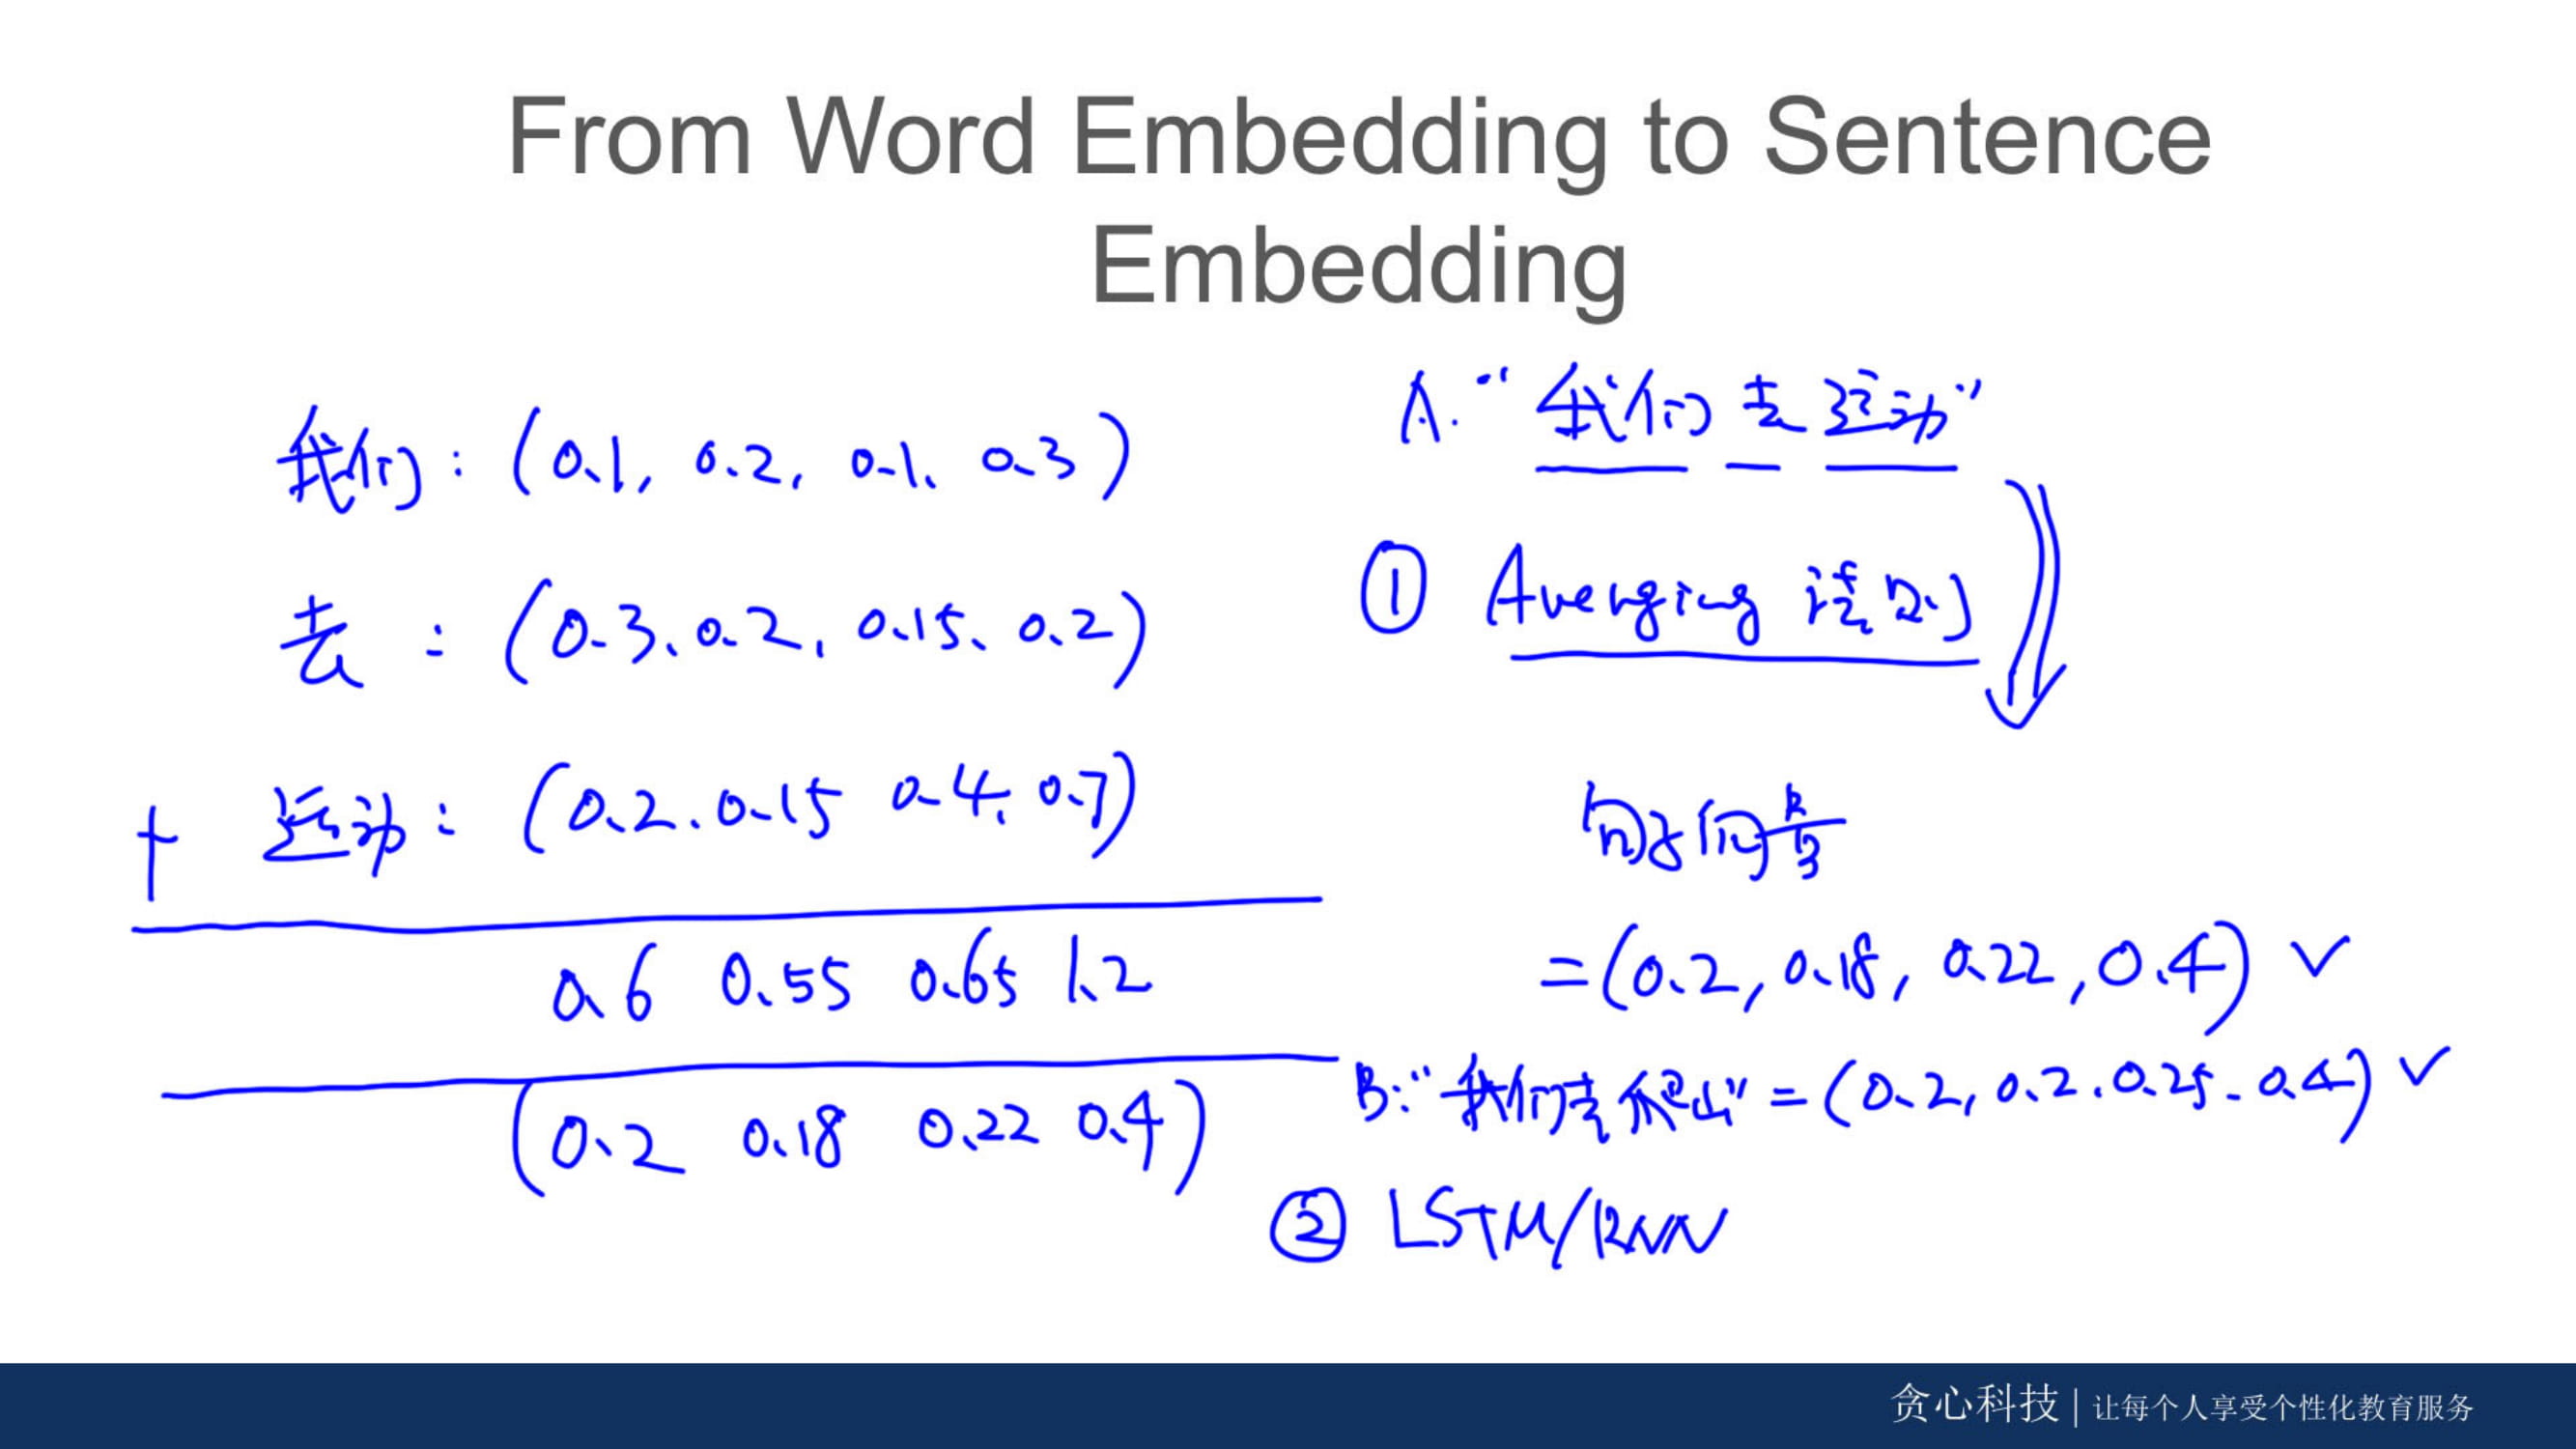 From Word Embedding to Sentence
Embedding
我们: (0.1, 0.2, 0.1, 0.3)
去: (0.3, 0.2, 0.15, 0.2)
+ 运动: (0.2, 0.15 0.4, 0.7)
0.6 0.55 0.65 1.2
(0.2 0.18 0.22 0.4)
A. "我们去运动"
① Averging 法则
句子向量
=(0.2, 0.18, 0.22, 0.4) ✓
B: "我们去爬山" = (0.2, 0.2, 0.25, 0.4) ✓
② LSTM/RNN
贪心科技 | 让每个人享受个性化教育服务